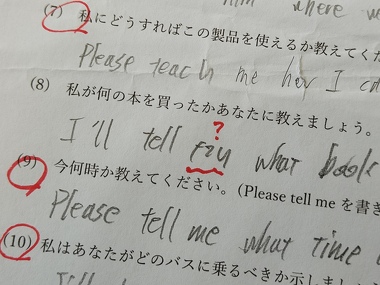 him where w
(7) 私にどうすればこの製品を使えるか教えてくだ
Please teach me how I ca
(8) 私が何の本を買ったかあなたに教えましょう。
?
I'll tell what book
(9) 今何時か教えてください。(Please tell me を書き
Please tell me what time
(10) 私はあなたがどのバスに乗るべきか示しましょ
I'll